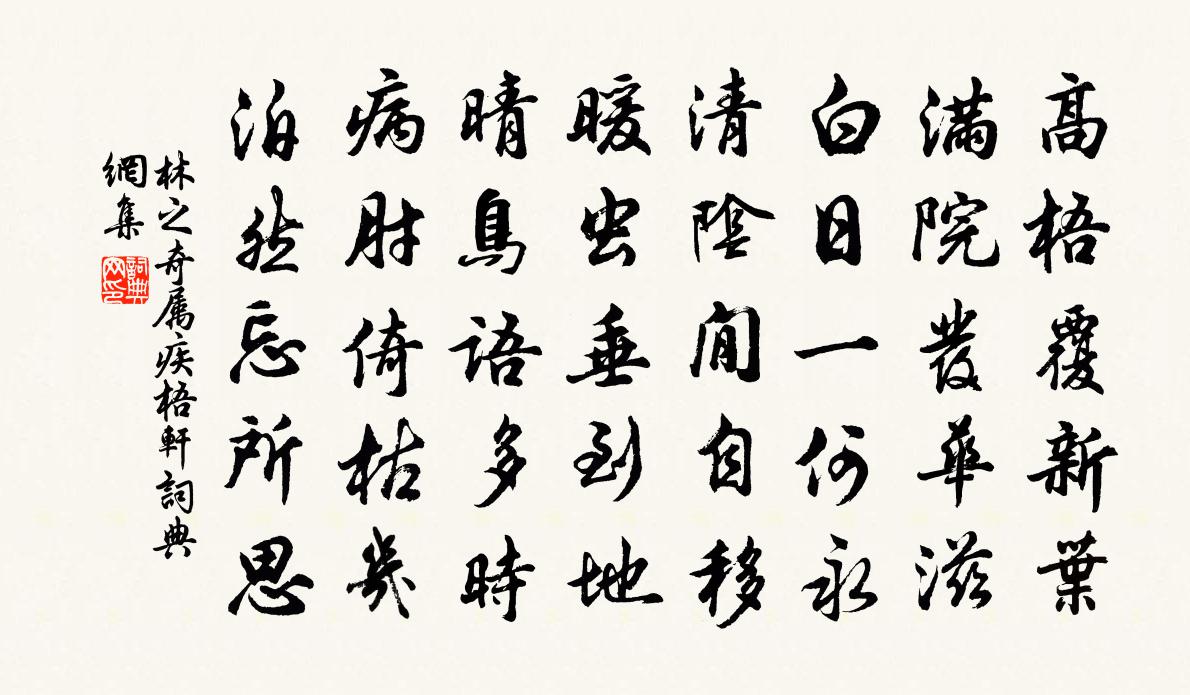 高梧覆新葉
滿院發華滋
白日一何永
清陰閒自移
暖虫垂到地
晴鳥語多時
病肘倚枯几
泊然忘所思
林之奇屬疾梧軒詞典
網集
詞典
网印